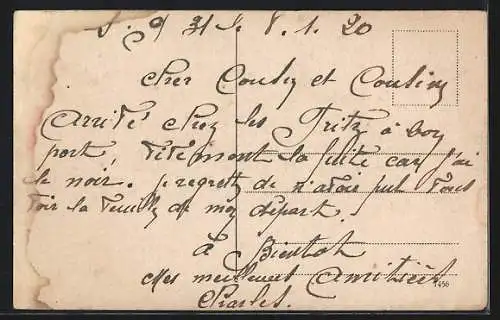 S. 9 31 le 8.1.20
Cher Cousin et Cousine
Arrivé chez les Fritz à bon
port, vite mont la suite car j'ai
le noir. je regrette de n'avoir put vous
voir la veille de mon départ.
à Bientot
Mes meilleures Amitiées
Charles.
456